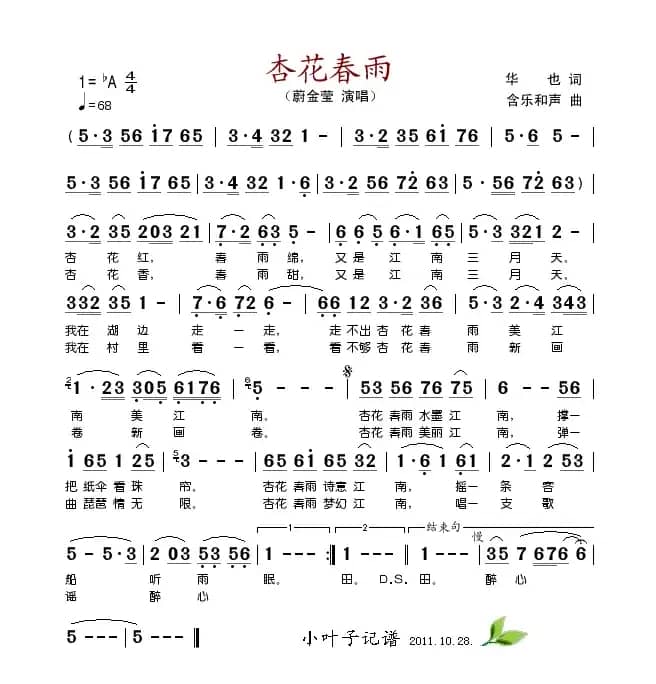 杏花春雨
1=♭A 4/4
♩=68
（蔚金莹 演唱）
华 也 词
含乐和声 曲
(5·3 56 i7 65 | 3·4 32 1 - | 3·2 35 6i 76 | 5·6 5 - |
5·3 56 i7 65 | 3·4 32 1·6 | 3·2 56 72 63 | 5·56 72 63) |
3·2 35 203 21 | 7·2 63 5 - | 6 6 5 6·1 65 | 5·3 321 2 - |
杏 花 红, 春 雨 绵, 又 是 江 南 三 月 天,
杏 花 香, 春 雨 甜, 又 是 江 南 三 月 天,
332 35 1 - | 7·6 72 6 - | 66 12 3·2 36 | 5·3 2·4 343 |
我在 湖 边 走 一 走, 走 不出 杏 花 春 雨 美 江
我在 村 里 看 一 看, 看 不够 杏 花 春 雨 新 画
1·23 305 6176 | 5 - - - | 53 56 76 75 | 6 - - 56 |
南 美 江 南。 杏花 春雨 水墨 江 南, 撑一
卷 新 画 卷。 杏花 春雨 美丽 江 南, 弹一
i 65 1 25 | 3 - - - | 65 35 65 32 | 1·6 1 61 | 2·1 2 53 |
把 纸伞 看 珠 帘。 杏花 春雨 诗意 江 南, 摇一 条 客
曲 琵琶 情 无 限。 杏花 春雨 梦幻 江 南, 唱一 支 歌
1 2 结束句 慢
5 - 5·3 | 2 03 53 56 | 1 - - - :| 1 - - - | 1 - - 35 | 7 676 6 |
船 听 雨 眠。 田。 D.S. 田。 醉 心
谣 醉 心
5 - - - | 5 - - - ‖
小叶子记谱 2011.10.28.